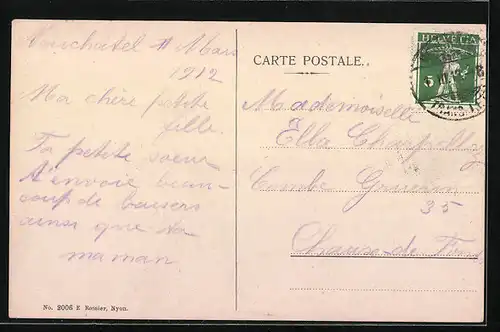 Neuchatel 11 Mars
1912
Ma chère petite
fille.
Ta petite soeur
t'envoie beau-
coup de baisers
ainsi que ta
maman
CARTE POSTALE.
HELVETIA
5
Mademoiselle
Ella
Combe Grieurin
35
Chaux-de-Fonds
No. 2006 E Rossier, Nyon.